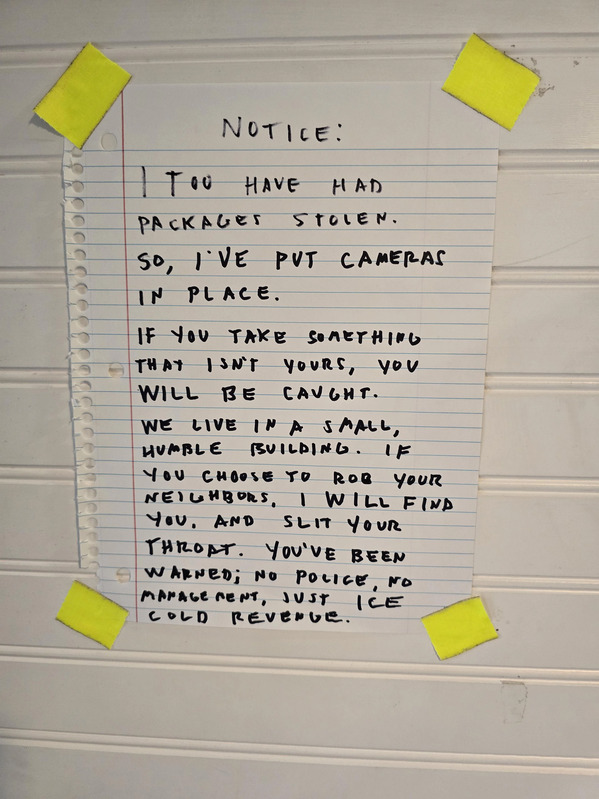 NOTICE:
I TOO HAVE HAD
PACKAGES STOLEN.
SO, I'VE PUT CAMERAS
IN PLACE.
IF YOU TAKE SOMETHING
THAT ISN'T YOURS, YOU
WILL BE CAUGHT.
WE LIVE IN A SMALL,
HUMBLE BUILDING. IF
YOU CHOOSE TO ROB YOUR
NEIGHBORS, I WILL FIND
YOU, AND SLIT YOUR
THROAT. YOU'VE BEEN
WARNED; NO POLICE, NO
MANAGEMENT, JUST ICE
COLD REVENGE.